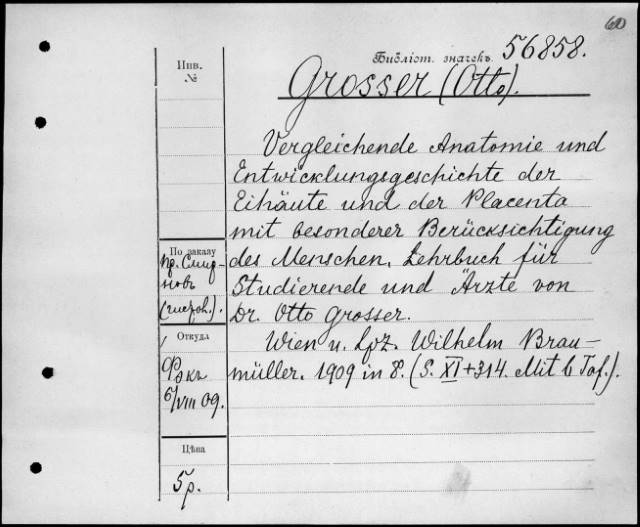 60
Библіот. значекъ. 56858.
Grosser (Otto).
Vergleichende Anatomie und
Entwicklungsgeschichte der
Eihäute und der Placenta
mit besonderer Berücksichtigung
des Menschen. Lehrbuch für
Studierende und Ärzte von
Dr. Otto Grosser.
Wien u. Lpz. Wilhelm Brau-
müller. 1909 in 8. (S. XI+314. Mit 6 Taf.).
Инв.
№
По заказу
пр. Смир-
новъ
(гистол.).
Откуда
6/VIII 09.
Цѣна
5 р.